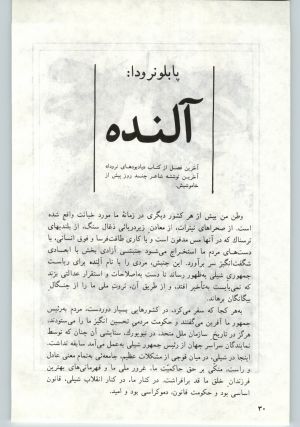 پابلونرودا:
آلنده
آخرین فصل از کتاب «یادبودهای نرودا»
آخرین نوشته شاعر چند روز پیش از
خاموشیش.
وطن من بیش از هر کشور دیگری در زمانهٔ ما مورد خیانت واقع شده
است. از صحراهای نیترات، از معادن زیردریائی ذغال سنگ، از بلندیهای
ترسناک که در آنها مس مدفون است و با کاری طاقت‌فرسا و فوق انسانی، با
دست‌های مردم ما استخراج می‌شود جنبشی آزادی بخش با ابعادی
شگفت‌انگیز سر برآورد. این جنبش، مردی را با نام آلنده برای ریاست
جمهوری شیلی به‌ظهور رساند تا دست به‌اصلاحات و استقرار عدالتی بزند
که نمی‌بایست به‌تأخیر افتد، و از طریق آن، ثروت ملی ما را از چنگال
بیگانگان برهاند.
به‌هر کجا که سفر می‌کرد، در کشورهایی بسیار دوردست، مردم به‌رئیس
جمهور ما آفرین می‌گفتند و حکومت مردمی تحسین انگیز ما را می‌ستودند.
هرگز در تاریخ سازمان ملل متحد، در نیویورک، ستایشی آن چنان که توسط
نمایندگان سراسر جهان از رئیس جمهوری شیلی به‌عمل می‌آمد سابقه نداشت.
اینجا در شیلی، در میان فوجی از مشکلات عظیم، جامعه‌ئی به‌تمام معنی عادل
و راست، متکی بر حق حاکمیت ما. غرور ملی ما و قهرمانی‌های بهترین
فرزندان خلق ما قد برافراشت. در کنار ما، در کنار انقلاب شیلی، قانون
اساسی بود و حکومت قانون، دموکراسی بود و امید.
۳۰